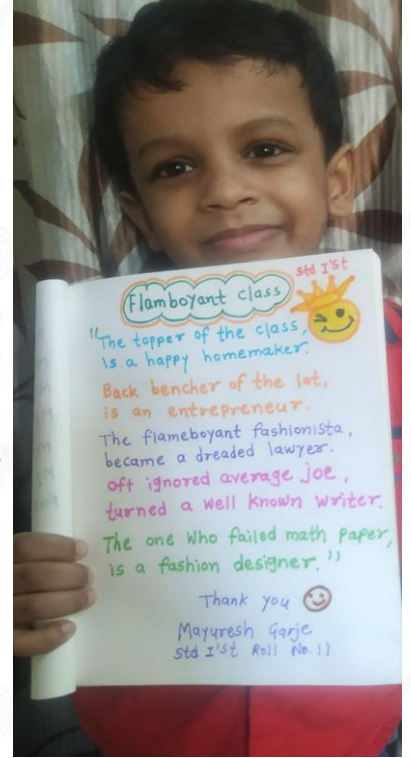 std I'st
Flamboyant class
"The topper of the class,
Is a happy homemaker.
Back bencher of the lot,
is an entrepreneur.
The flameboyant fashionista,
became a dreaded lawyer.
oft ignored average joe,
turned a well known writer.
The one who failed math paper,
is a fashion designer."
Thank you
Mayuresh Garje
Std I'st Roll No. 11